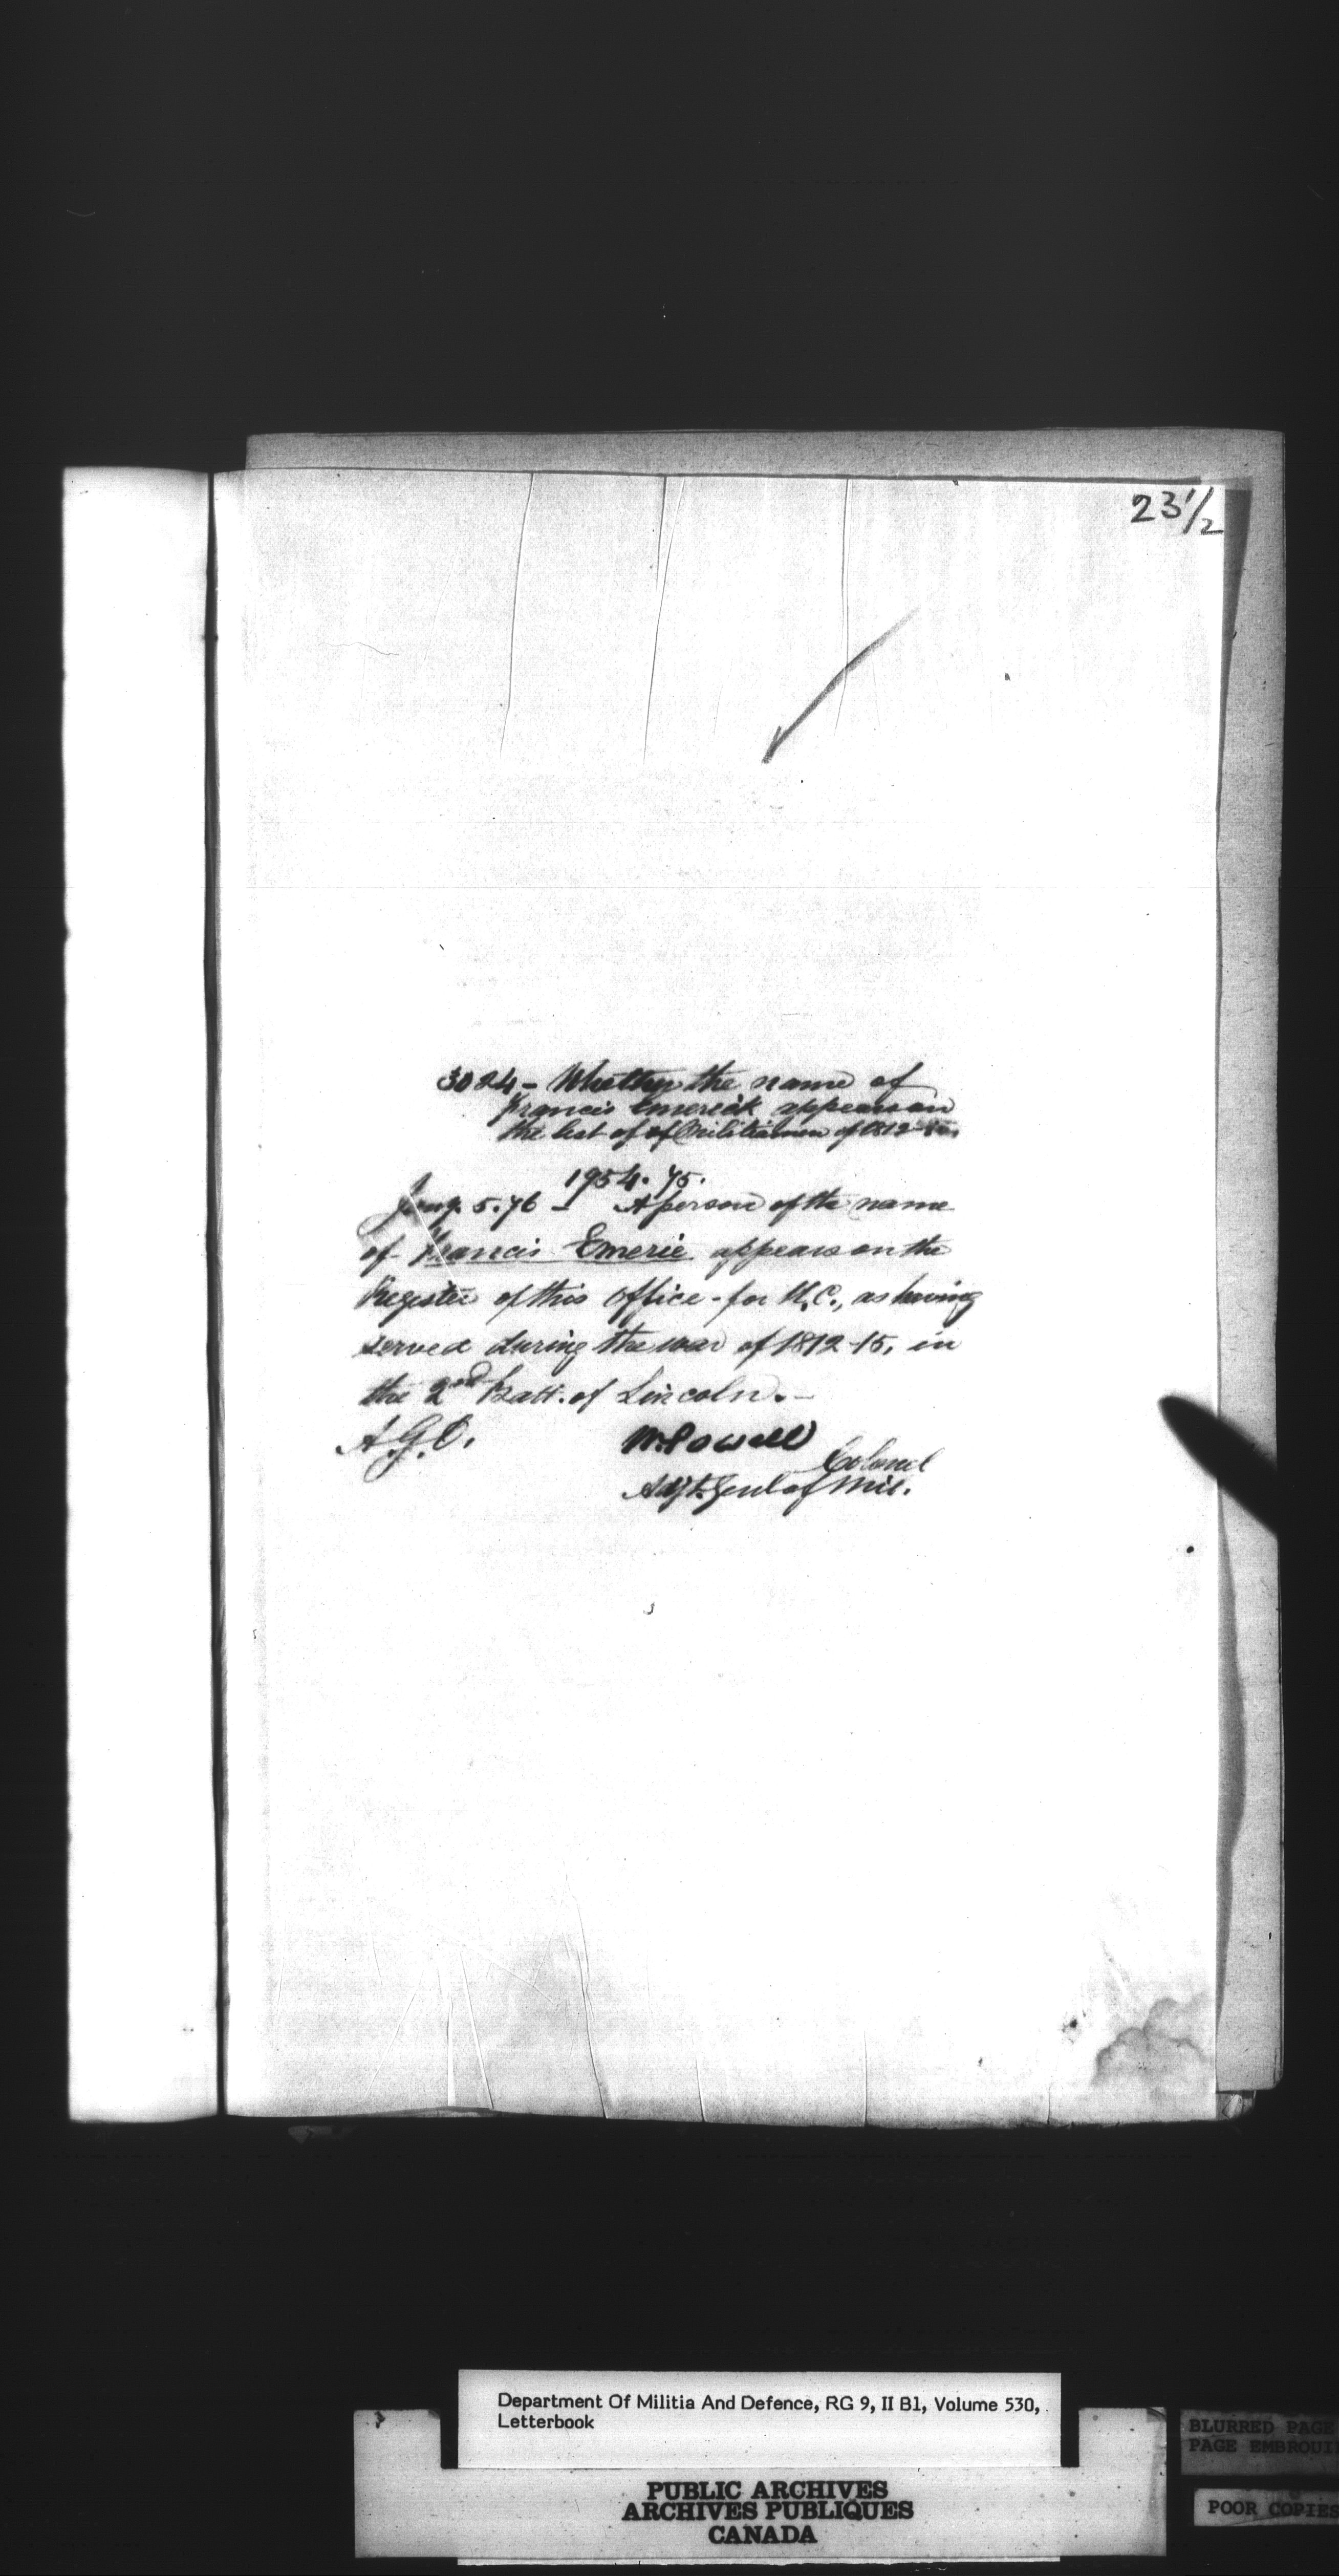 23 1/2
3024 - Whether the name of
Francis Emerick appears on
the list of of Militiamen of 1812-15.
1954. 75.
Jany. 5. 76 - A person of the name
of Francis Emerie appears on the
Register of this office - for U.C., as having
served during the war of 1812-15, in
the 2nd Batt. of Lincoln. -
A.G.O.
W. Powell
Colonel
Adjt. Genl of Mil.
Department Of Militia And Defence, RG 9, II B1, Volume 530,
Letterbook
PUBLIC ARCHIVES
ARCHIVES PUBLIQUES
CANADA
BLURRED PAGE
PAGE EMBROUI
POOR COPIES